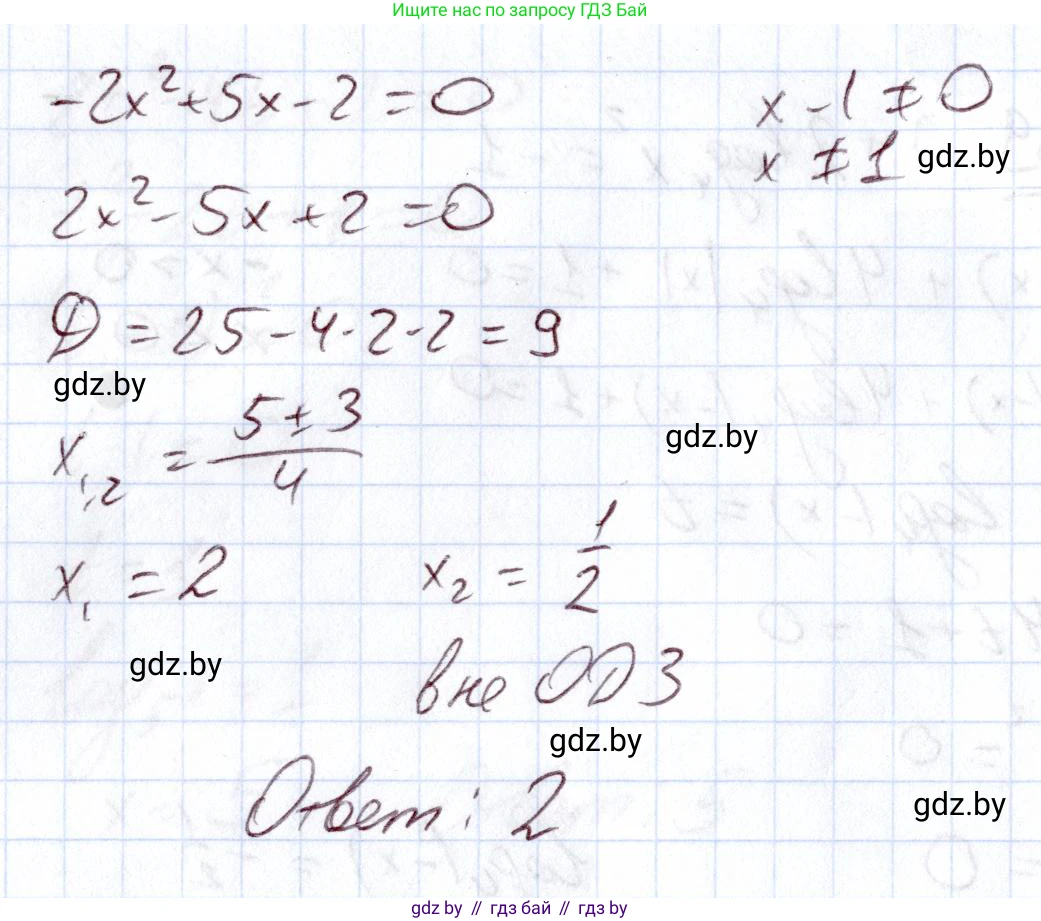 Ищите нас по запросу ГДЗ Бай
-2x²+5x-2=0
x-1≠0
x≠1
gdz.by
2x²-5x+2=0
D=25-4·2·2=9
gdz.by
x₁,₂ = (5±3)/4
gdz.by
x₁=2
x₂ = 1/2
gdz.by
вне ОДЗ
gdz.by
Ответ: 2
gdz.by
gdz.by // гдз бай // гдз by